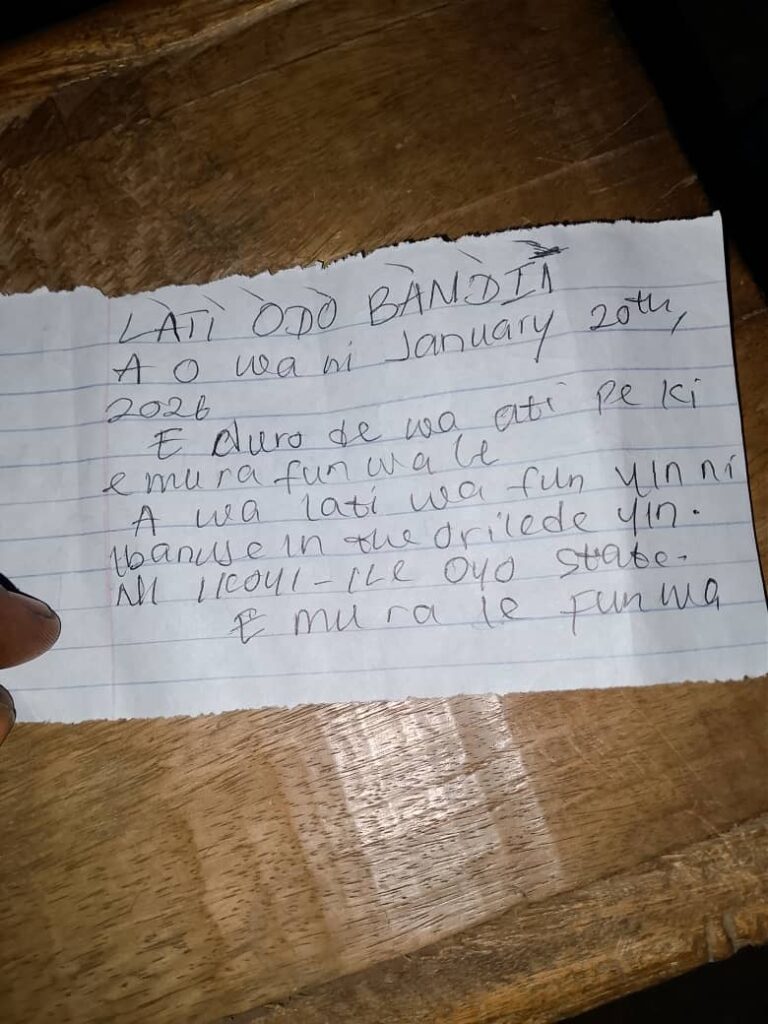 LÀTÌ ÒDÒ BÀNDÌT
A O wa ni January 20th,
2026
E duro de wa ati pe ki
e mura fun wa le
A wa lati wa fun yin ni
Ibanuje in the orilede yin.
NI IKOYI-ILE OYO state.
E mu ra le fun wa